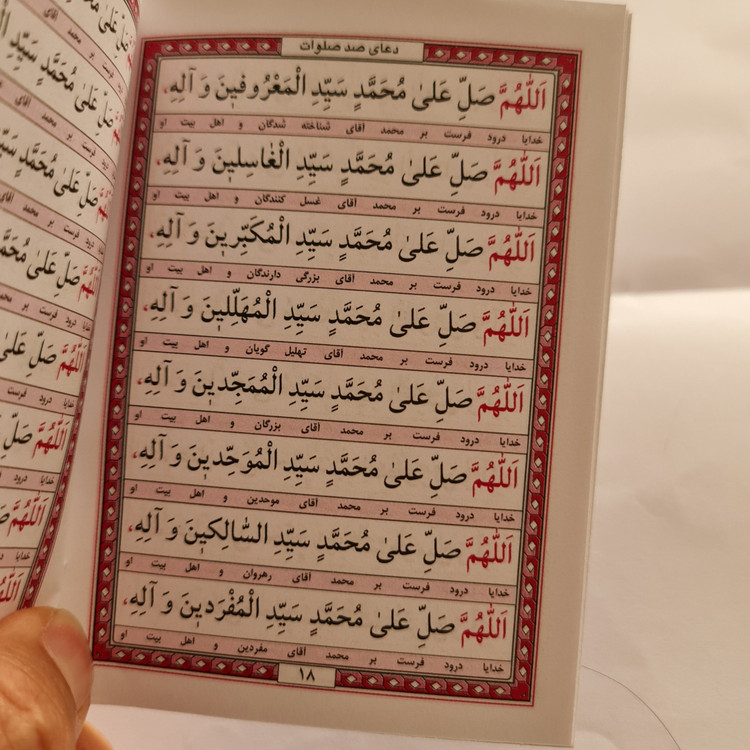 دعای صد صلوات
اَللّٰهُمَّ صَلِّ عَلیٰ مُحَمَّدٍ سَیِّدِ الْمَعْرُوفینَ وَ آلِهِ،
خدایا درود فرست بر محمد آقای شناخته شدگان و اهل بیت او
اَللّٰهُمَّ صَلِّ عَلیٰ مُحَمَّدٍ سَیِّدِ الْغٰاسِلینَ وَ آلِهِ،
خدایا درود فرست بر محمد آقای غسل کنندگان و اهل بیت او
اَللّٰهُمَّ صَلِّ عَلیٰ مُحَمَّدٍ سَیِّدِ الْمُکَبِّرینَ وَ آلِهِ،
خدایا درود فرست بر محمد آقای بزرگی دارندگان و اهل بیت او
اَللّٰهُمَّ صَلِّ عَلیٰ مُحَمَّدٍ سَیِّدِ الْمُهَلِّلینَ وَ آلِهِ،
خدایا درود فرست بر محمد آقای تهلیل گویان و اهل بیت او
اَللّٰهُمَّ صَلِّ عَلیٰ مُحَمَّدٍ سَیِّدِ الْمُمَجِّدینَ وَ آلِهِ،
خدایا درود فرست بر محمد آقای بزرگان و اهل بیت او
اَللّٰهُمَّ صَلِّ عَلیٰ مُحَمَّدٍ سَیِّدِ الْمُوَحِّدینَ وَ آلِهِ،
خدایا درود فرست بر محمد آقای موحدین و اهل بیت او
اَللّٰهُمَّ صَلِّ عَلیٰ مُحَمَّدٍ سَیِّدِ السّٰالِکینَ وَ آلِهِ،
خدایا درود فرست بر محمد آقای رهروان و اهل بیت او
اَللّٰهُمَّ صَلِّ عَلیٰ مُحَمَّدٍ سَیِّدِ الْمُفْرَدینَ وَ آلِهِ،
خدایا درود فرست بر محمد آقای مفردین و اهل بیت او
۱۸